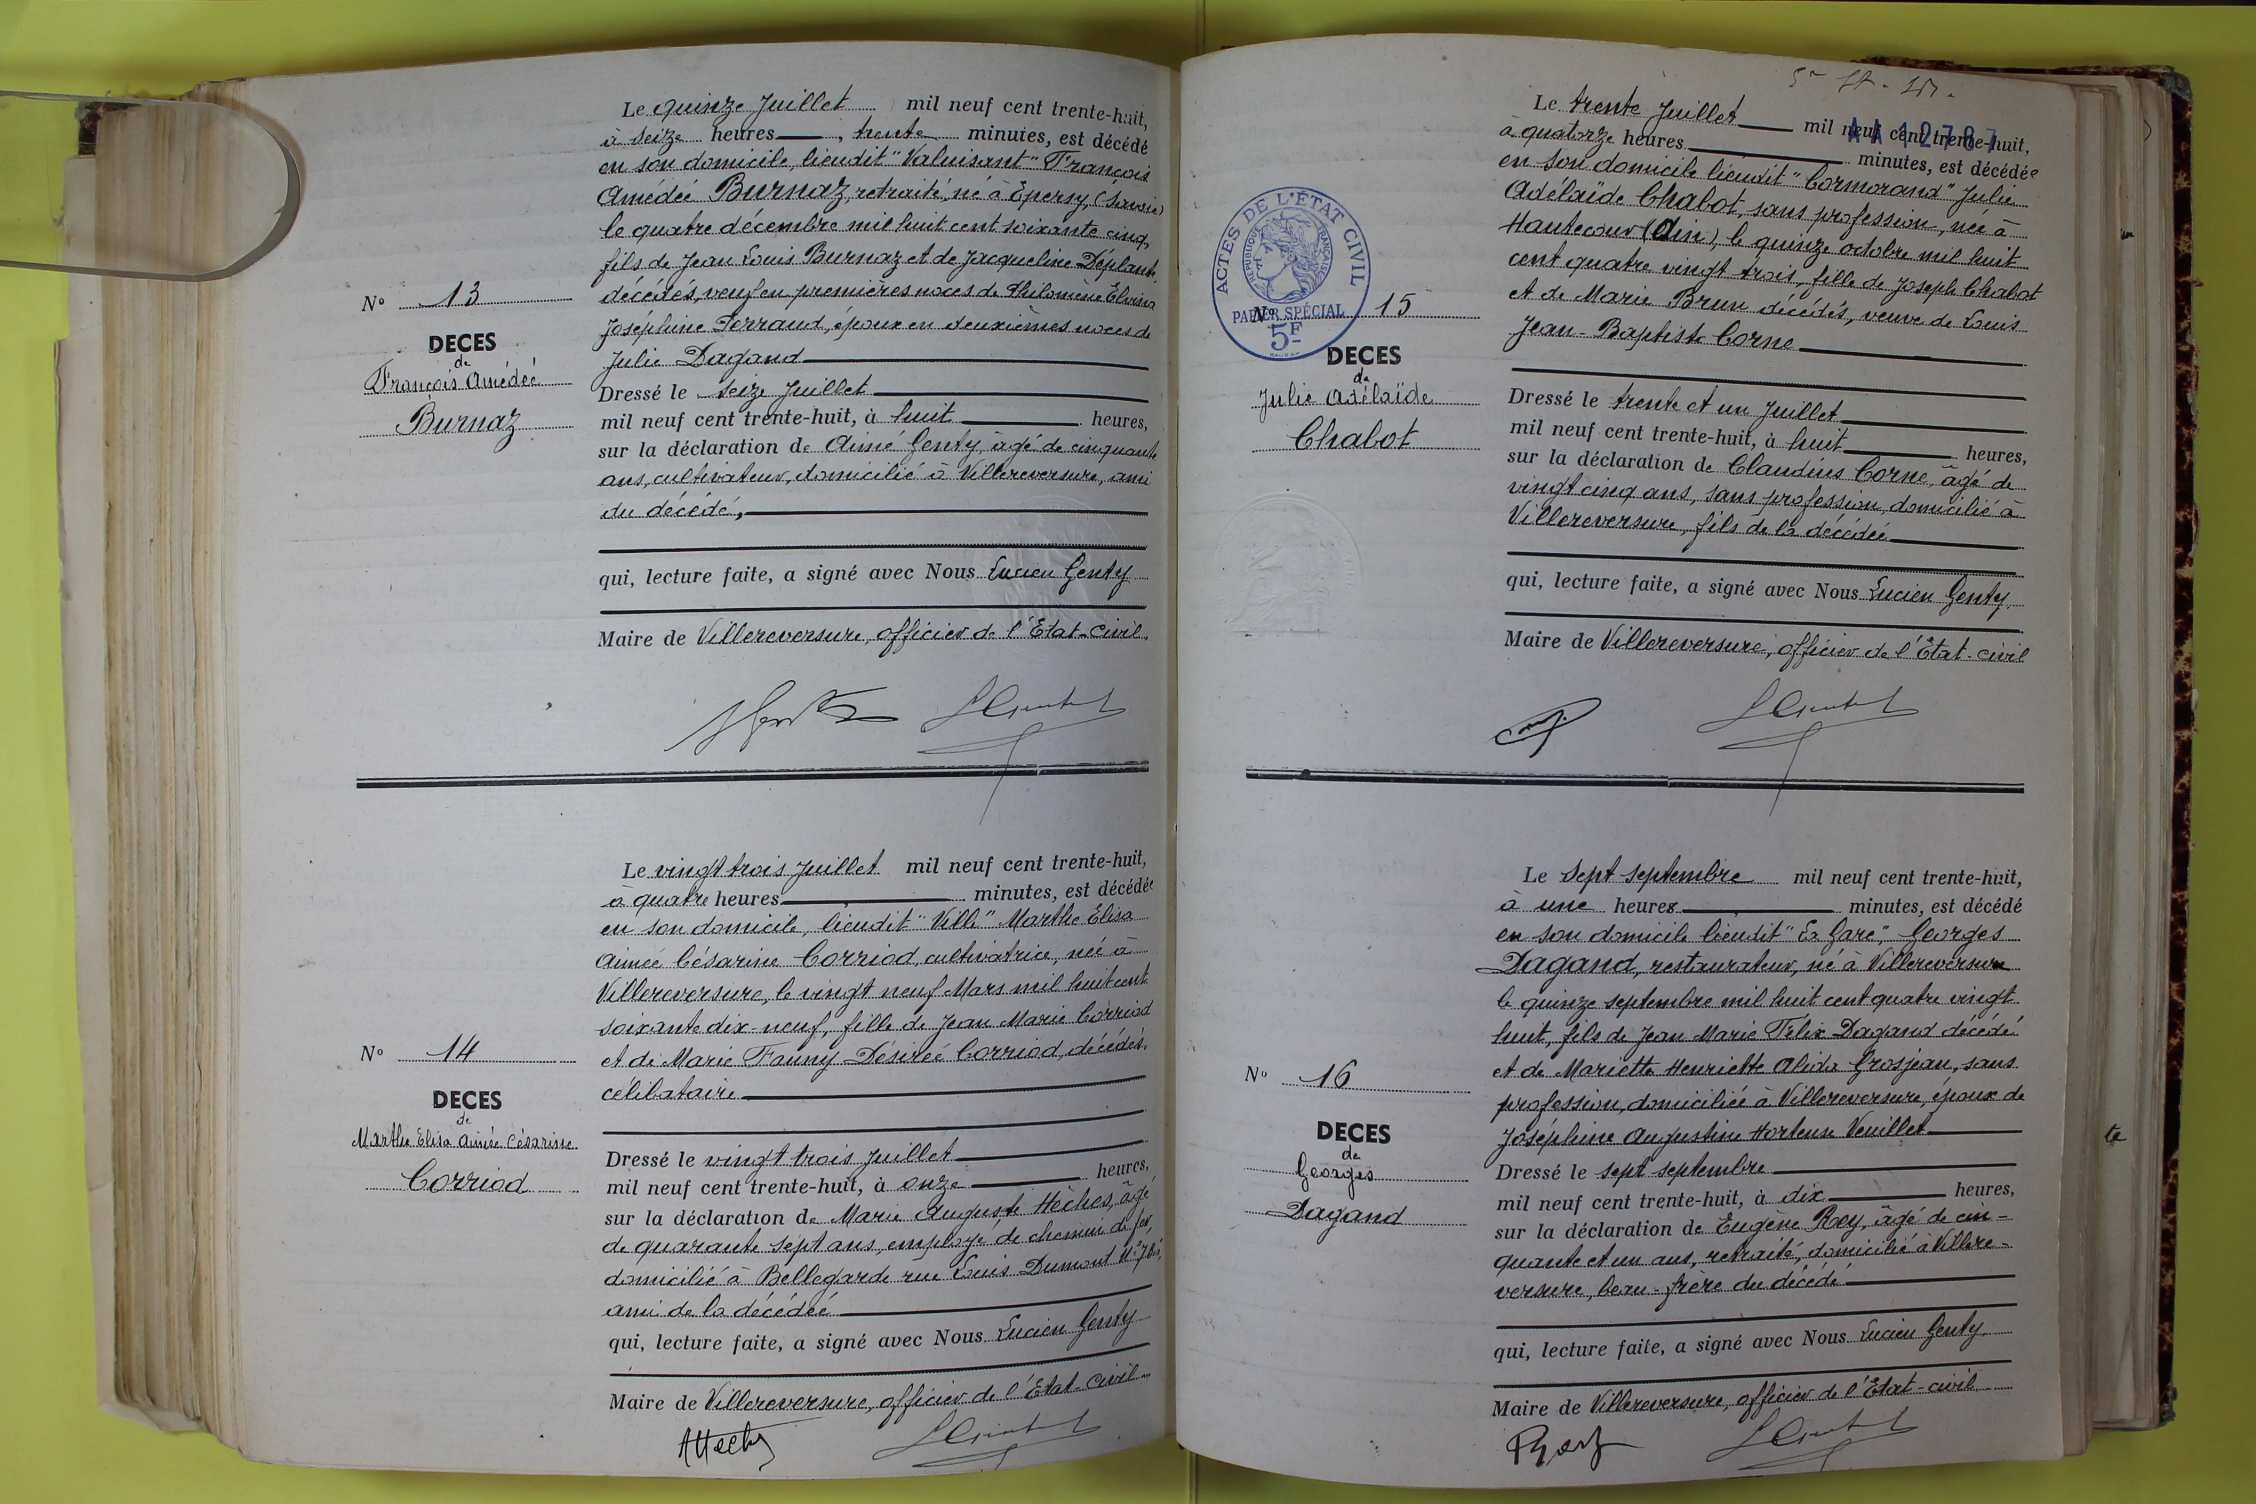 Le quinze Juillet mil neuf cent trente-huit,
à seize heures, trente minutes, est décédé
en son domicile, lieudit "Valuisant" François
Amédée Burnaz, retraité, né à Epersy, (Savoie)
le quatre décembre mil huit cent soixante cinq,
fils de Jean Louis Burnaz et de Jacqueline Déplante
décédés, veuf en premières noces de Philomène Eloïsa
Joséphine Ferraud, époux en deuxièmes noces de
Julie Dagand
N° 13
DECES
de
François Amédée
Burnaz
Dressé le seize Juillet
mil neuf cent trente-huit, à huit heures,
sur la déclaration de Aimé Genty, âgé de cinquante
ans, cultivateur, domicilié à Villereversure, ami
du décédé,
qui, lecture faite, a signé avec Nous Lucien Genty
Maire de Villereversure, officier de l'Etat-civil.
Le vingt trois Juillet mil neuf cent trente-huit,
à quatre heures minutes, est décédée
en son domicile, lieudit "Ville" Marthe Elisa
Aimée Césarine Corriod, cultivatrice, née à
Villereversure, le vingt neuf Mars mil huit cent
soixante dix-neuf, fille de Jean Marie Corriod
et de Marie Fanny Désirée Corriod, décédés.
célibataire
N° 14
DECES
de
Marthe Elisa Aimée Césarine
Corriod
Dressé le vingt trois Juillet
mil neuf cent trente-huit, à onze heures,
sur la déclaration de Marie Auguste Hèches, âgé
de quarante sept ans, employé de chemin de fer,
domicilié à Bellegarde rue Louis Dumont N°
ami de la décédée
qui, lecture faite, a signé avec Nous Lucien Genty
Maire de Villereversure, officier de l'Etat-civil
AA 12787
Le trente Juillet mil neuf cent trente-huit,
à quatorze heures minutes, est décédée
en son domicile lieudit "Cormorand" Julie
Adélaïde Chabot, sans profession, née à
Hautecour (Ain), le quinze octobre mil huit
cent quatre vingt trois, fille de Joseph Chabot
et de Marie Brun décédés, veuve de Louis
Jean-Baptiste Corne
ACTES DE L'ÉTAT CIVIL
RÉPUBLIQUE FRANÇAISE
PAPIER SPÉCIAL
5F
N° 15
DECES
de
Julie Adélaïde
Chabot
Dressé le trente et un Juillet
mil neuf cent trente-huit, à huit heures,
sur la déclaration de Claudius Corne, âgé de
vingt cinq ans, sans profession, domicilié à
Villereversure, fils de la décédée
qui, lecture faite, a signé avec Nous Lucien Genty,
Maire de Villereversure, officier de l'Etat-civil
Le sept septembre mil neuf cent trente-huit,
à une heure minutes, est décédé
en son domicile lieudit "La Gare", Georges
Dagand, restaurateur, né à Villereversure
le quinze septembre mil huit cent quatre vingt
huit, fils de Jean Marie Félix Dagand décédé
et de Mariette Henriette Alida Grosjean, sans
profession, domiciliée à Villereversure, époux de
Joséphine Augustine Hortense Veuillet
N° 16
DECES
de
Georges
Dagand
Dressé le sept septembre
mil neuf cent trente-huit, à dix heures,
sur la déclaration de Eugène Rey, âgé de cin-
quante et un ans, retraité, domicilié à Villere-
versure, beau-frère du décédé
qui, lecture faite, a signé avec Nous Lucien Genty
Maire de Villereversure, officier de l'Etat-civil
te